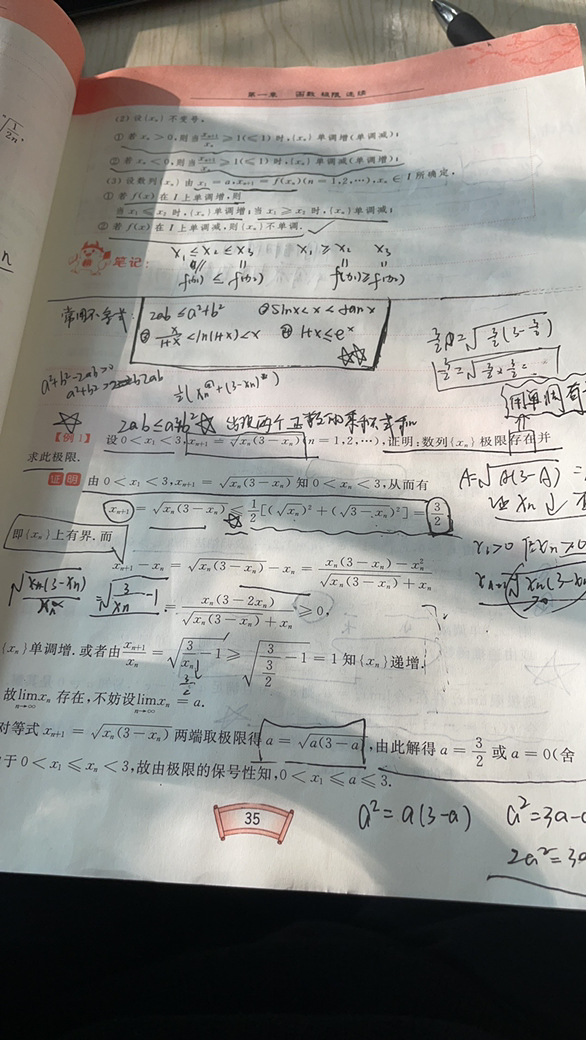 第一章 函数 极限 连续
(2) 设{xₙ}不变号.
① 若 xₙ > 0, 则当 xₙ₊₁/xₙ ≥ 1(≤ 1) 时, {xₙ} 单调增(单调减);
② 若 xₙ < 0, 则当 xₙ₊₁/xₙ ≥ 1(≤ 1) 时, {xₙ} 单调减(单调增);
(3) 设数列{xₙ} 由 x₁ = a, xₙ₊₁ = f(xₙ)(n = 1,2,…), xₙ ∈ I 所确定,
① 若 f(x) 在 I 上单调增, 则
当 x₁ ≤ x₂ 时, {xₙ} 单调增; 当 x₁ ≥ x₂ 时, {xₙ} 单调减;
② 若 f(x) 在 I 上单调减, 则{xₙ} 不单调.
笔记:
x₁ ≤ x₂ ≤ x₃ x₁ ≥ x₂ x₃
f(x₁) ≤ f(x₂) f(x₁) ≥ f(x₂)
常用不等式:
2ab ≤ a²+b² ② sinx < x < tanx
③ x/(1+x) < ln(1+x) < x ④ 1+x ≤ eˣ
a²+b²-2ab≥0
a²+b²≥2ab
2ab≤a²+b²
【例1】 设 0 < x₁ < 3, xₙ₊₁ = √(xₙ(3−xₙ)) (n = 1,2,…), 证明: 数列{xₙ} 极限存在并
求此极限.
证明 由 0 < x₁ < 3, xₙ₊₁ = √(xₙ(3−xₙ)) 知 0 < xₙ < 3, 从而有
xₙ₊₁ = √(xₙ(3−xₙ)) ≤ 1/2[(√xₙ)² + (√(3−xₙ))²] = 3/2
即{xₙ} 上有界. 而
xₙ₊₁ − xₙ = √(xₙ(3−xₙ)) − xₙ = (xₙ(3−xₙ) − xₙ²)/(√(xₙ(3−xₙ)) + xₙ)
= xₙ(3−2xₙ)/(√(xₙ(3−xₙ)) + xₙ) ≥ 0,
√(xₙ(3-xₙ))/xₙ = √(3/xₙ -1)
{xₙ} 单调增. 或者由 xₙ₊₁/xₙ = √(3/xₙ − 1) ≥ √(3/(3/2) − 1) = 1 知{xₙ} 递增.
3/2
故 lim(n→∞) xₙ 存在, 不妨设 lim(n→∞) xₙ = a.
对等式 xₙ₊₁ = √(xₙ(3−xₙ)) 两端取极限得 a = √(a(3−a)), 由此解得 a = 3/2 或 a = 0(舍
于 0 < x₁ ≤ xₙ < 3, 故由极限的保号性知, 0 < x₁ ≤ a ≤ 3.
a² = a(3-a)
35